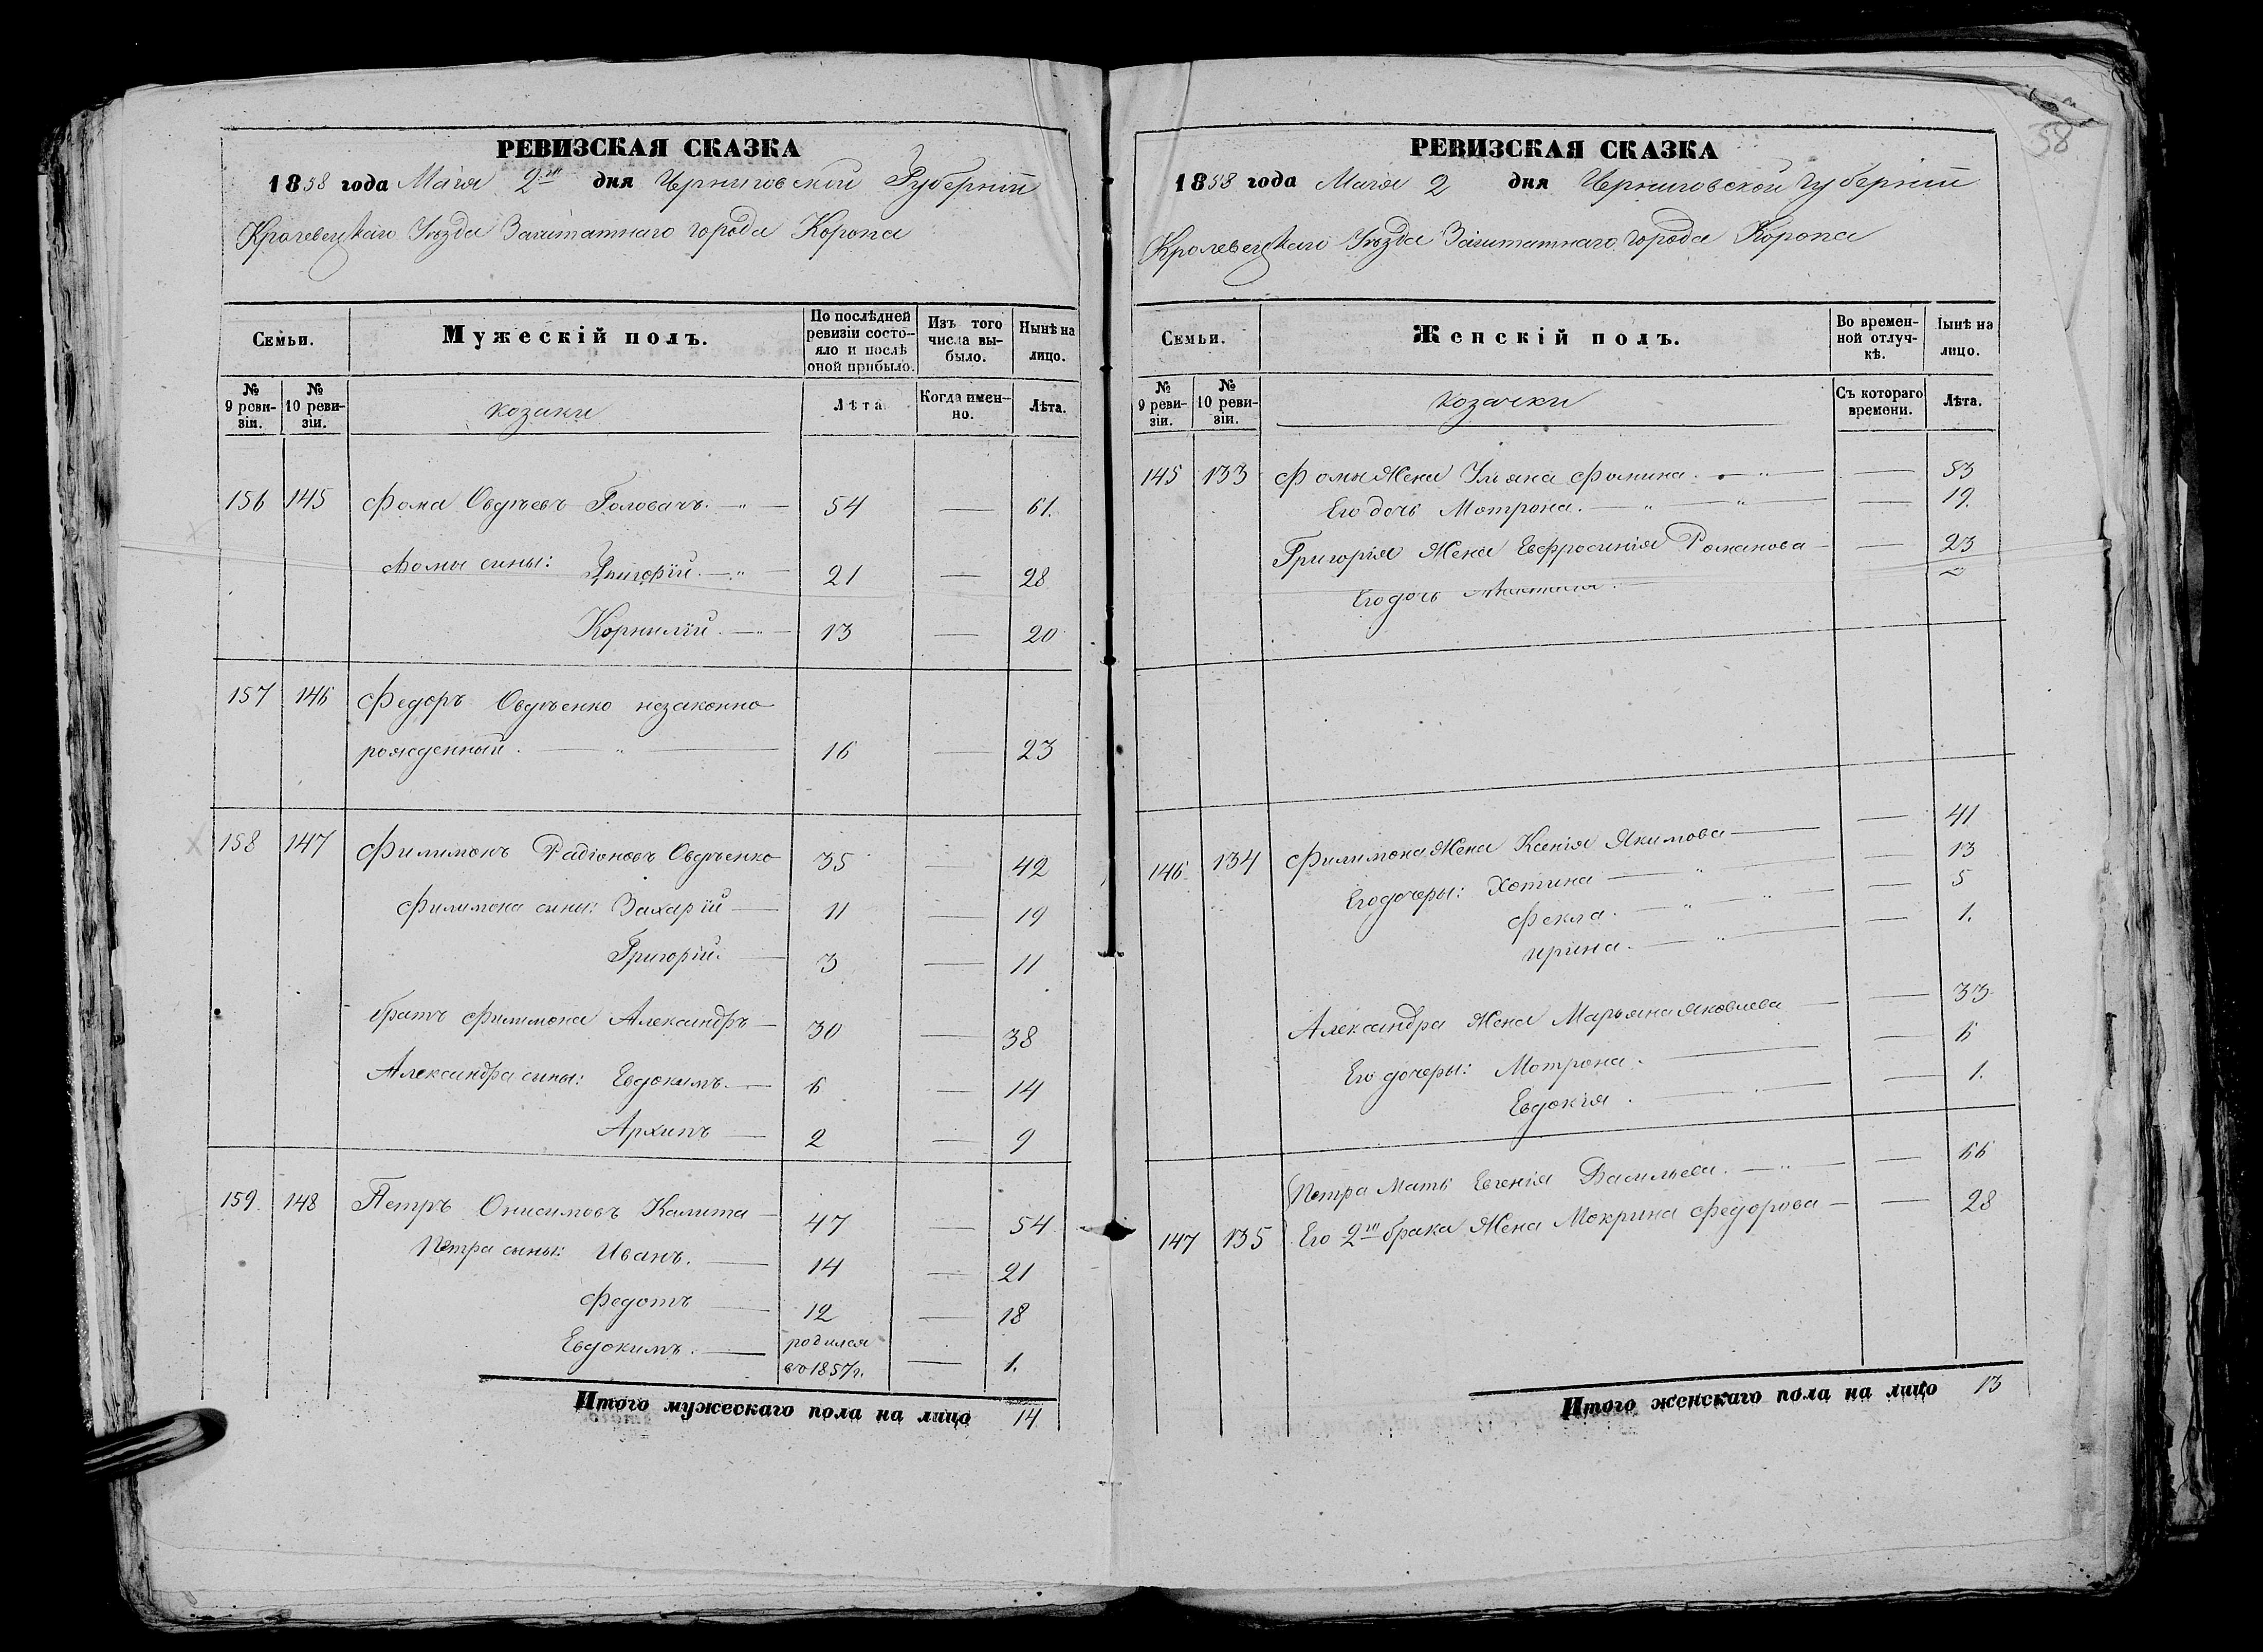 РЕВИЗСКАЯ СКАЗКА
1858 года Маія 2го дня Черниговской Губерніи
Кролевецкаго Уѣзда Заштатнаго города Коропа
Семьи.
Мужескій полъ.
По послѣдней ревизіи состояло и послѣ оной прибыло.
Изъ того числа выбыло.
Нынѣ на лицо.
№ 9 ревизіи.
№ 10 ревизіи.
козаки
Лѣта
Когда именно.
Лѣта.
156 145 Фома Овдѣевъ Головачъ. — „ — 54 — 61.
Фомы сины: Григорій. — „ — 21 — 28
Корнилій. — „ — 13 — 20
157 146 Федоръ Овдѣенко незаконно
рожденный. — „ — 16 — 23
158 147 Филимонъ Радіоновъ Овдѣенко 35 — 42
Филимона сыны: Захарій — 11 — 19
Григорій. — 3 — 11
братъ Филимона Александръ — 30 — 38
Александра сыны: Евдокимъ. — 6 — 14
Архипъ — 2 — 9
159. 148 Петръ Онисимовъ Калита — 47 — 54
Петра сыны: Иванъ. — 14 — 21
Федотъ — 12 — 18
Евдокимъ. — родился
въ 1857 г. — 1.
Итого мужескаго пола на лицо 14
58
РЕВИЗСКАЯ СКАЗКА
1858 года Маія 2 дня Черниговской губерніи
Кролевецкаго Уѣзда Заштатнаго города Коропа
Семьи.
Женскій полъ.
Во временной отлучкѣ.
Іынѣ на лицо.
№ 9 ревизіи.
№ 10 ревизіи.
козачки
Съ котораго времени.
Лѣта.
145 133 Фомы Жена Ульяна Фомина. — „ — — 53
Его дочь Мотрона. — „ — „ — — 19.
Григорія Жена Евфросинія Романова — — 23
Его дочь —
146 134 Филимона Жена Ксенія Якимова — — 41
Его дочеры: Хотина — „ — — 13
Фекла. — „ — „ — — 5
Ирина. — „ — — 1.
Александра Жена Марьяна Яковлева — — 33
Его дочеры: Мотрона. — — 6
Евдокія. — — 1.
Петра Мать Евгенія Васильева. — „ — — 66
147 135 Его 2го брака Жена Мокрина Федорова — — 28
Итого женскаго пола на лицо 13